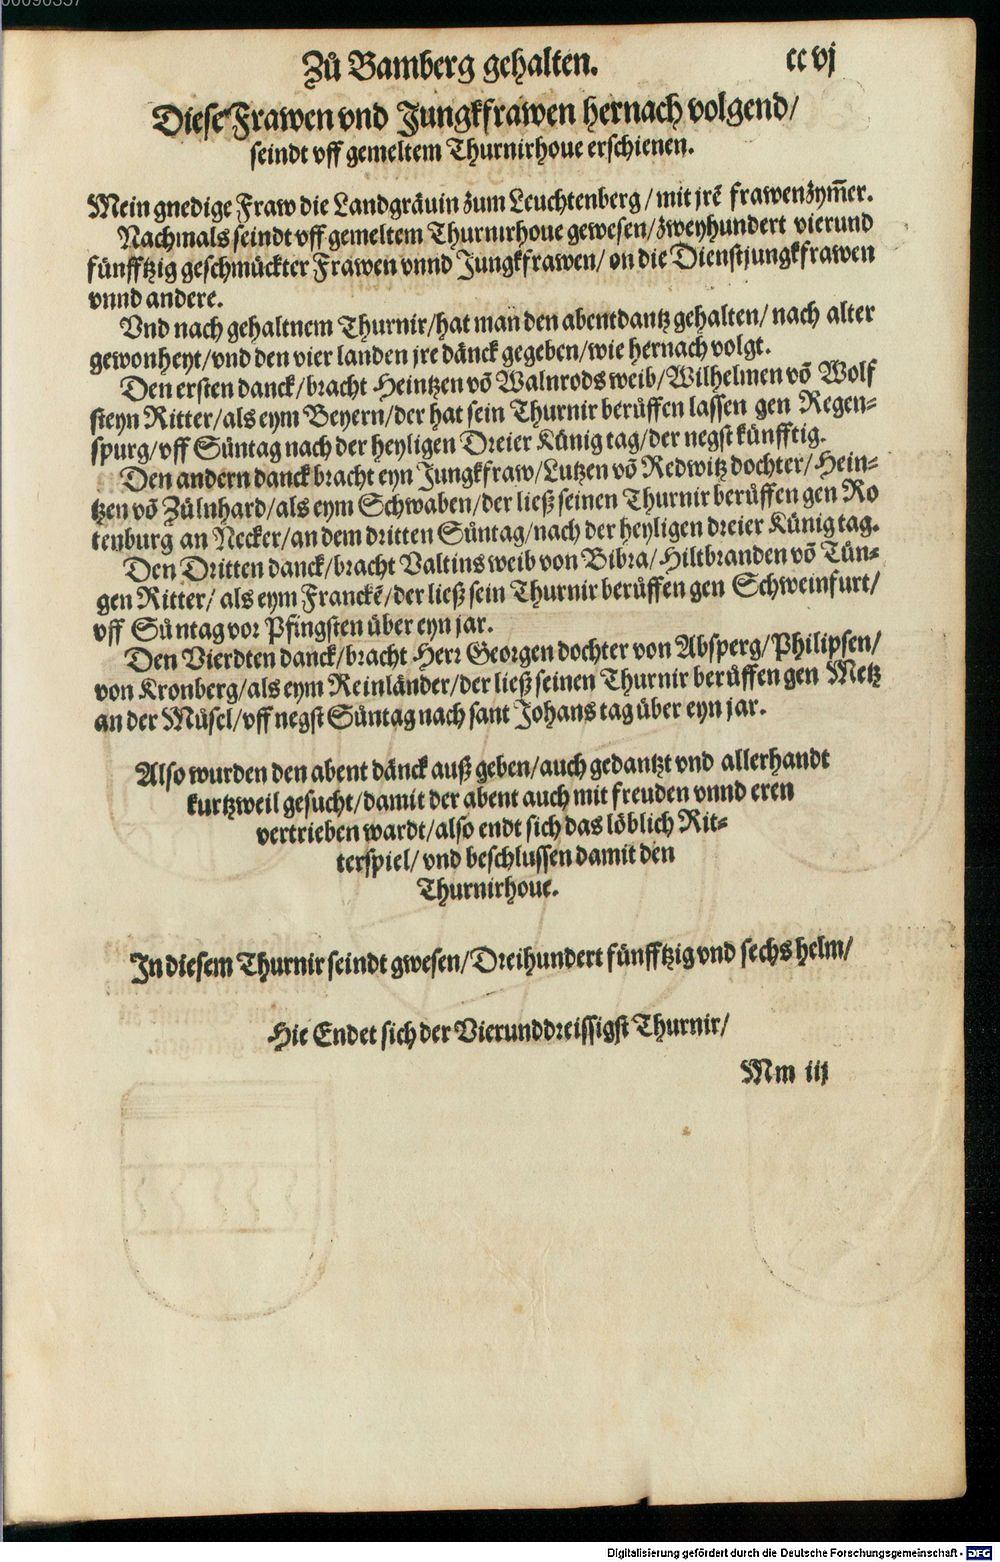 00090357
Zů Bamberg gehalten. ccvj
Diese Frawen vnd Jungkfrawen hernach volgend/
seindt vff gemeltem Thurnirhoue erschienen.
Mein gnedige Fraw die Landgräuin zum Leuchtenberg / mit jrẽ frawenzym̃er.
Nachmals seindt vff gemeltem Thurnirhoue gewesen/zweyhundert vierund
fünfftzig geschmückter Frawen vnnd Jungkfrawen/ on die Dienstjungkfrawen
vnnd andere.
Vnd nach gehaltnem Thurnir/hat man den abentdantz gehalten/ nach alter
gewonheyt/vnd den vier landen jre dänck gegeben/wie hernach volgt.
Den ersten danck/bracht Heintzen võ Walnrods weib/Wilhelmen võ Wolf
steyn Ritter/als eym Beyern/der hat sein Thurnir berůffen lassen gen Regen-
spurg/vff Sůntag nach der heyligen Dreier Künig tag/der negst künfftig.
Den andern danck bracht eyn Jungkfraw/Lutzen võ Redwitz dochter/Hein-
tzen võ Zülnhard/als eym Schwaben/der ließ seinen Thurnir berůffen gen Ro
tenburg an Necker/an dem dritten Sůntag/nach der heyligen dreier Künig tag.
Den Dritten danck/bracht Valtins weib von Bibra/Hiltbranden võ Tün-
gen Ritter/ als eym Franckẽ/der ließ sein Thurnir berůffen gen Schweinfurt/
vff Sůntag vor Pfingsten über eyn jar.
Den Vierdten danck/bracht Herr Georgen dochter von Absperg/Philipsen/
von Kronberg/als eym Reinländer/der ließ seinen Thurnir berůffen gen Metz
an der Můsel/vff negst Sůntag nach sant Johans tag über eyn jar.
Also wurden den abent dänck auß geben/auch gedantzt vnd allerhandt
kurtzweil gesucht/damit der abent auch mit freuden vnnd eren
vertrieben wardt/also endt sich das löblich Rit-
terspiel/vnd beschlussen damit den
Thurnirhoue.
In diesem Thurnir seindt gwesen/Dreihundert fünfftzig vnd sechs helm/
Hie Endet sich der Vierunddreissigst Thurnir/
Mm iij
Digitalisierung gefördert durch die Deutsche Forschungsgemeinschaft - DFG